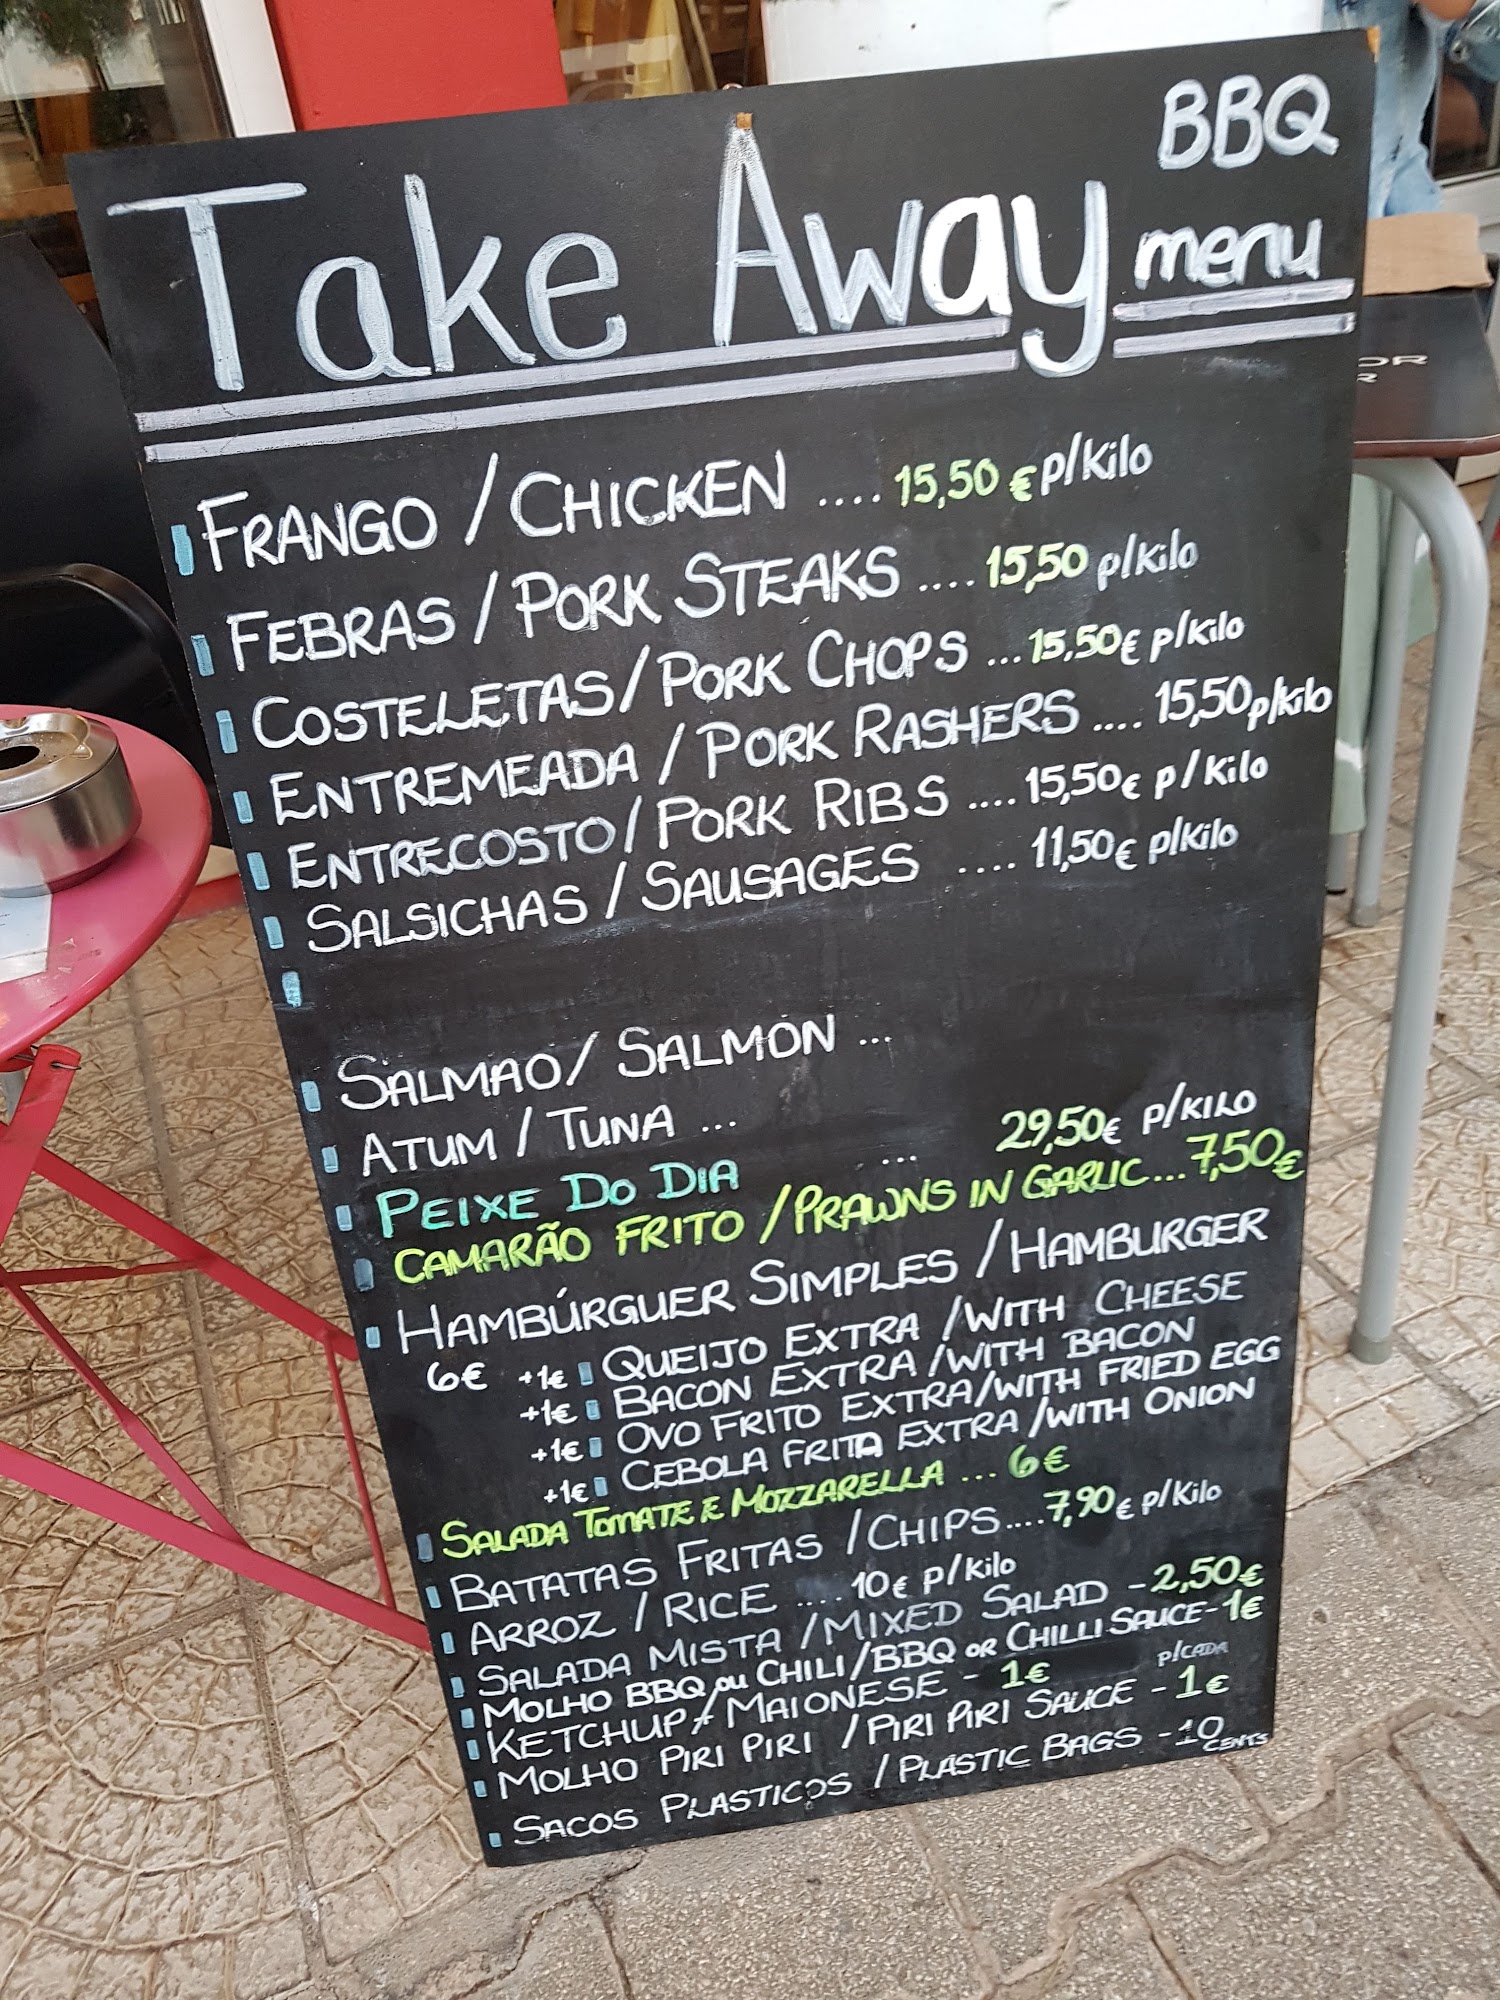 BBQ
Take Away menu
FRANGO / CHICKEN .... 15,50 € p/Kilo
FEBRAS / PORK STEAKS .... 15,50 p/Kilo
COSTELETAS / PORK CHOPS ... 15,50€ p/Kilo
ENTREMEADA / PORK RASHERS .... 15,50 p/kilo
ENTRECOSTO / PORK RIBS .... 15,50€ p/Kilo
SALSICHAS / SAUSAGES .... 11,50€ p/Kilo
SALMAO / SALMON ...
ATUM / TUNA ...
PEIXE DO DIA ... 29,50€ p/KILO
CAMARÃO FRITO / PRAWNS IN GARLIC ... 7,50€
HAMBÚRGUER SIMPLES / HAMBURGER
6€ +1€ QUEIJO EXTRA / WITH CHEESE
+1€ BACON EXTRA / WITH BACON
+1€ OVO FRITO EXTRA / WITH FRIED EGG
+1€ CEBOLA FRITA EXTRA / WITH ONION
SALADA TOMATE E MOZZARELLA ... 6€
BATATAS FRITAS / CHIPS .... 7,90€ p/Kilo
ARROZ / RICE .... 10€ p/Kilo
SALADA MISTA / MIXED SALAD - 2,50€
MOLHO BBQ ou CHILI / BBQ OR CHILLI SAUCE - 1€
KETCHUP / MAIONESE - 1€ P/CADA
MOLHO PIRI PIRI / PIRI PIRI SAUCE - 1€
SACOS PLASTICOS / PLASTIC BAGS - 10 CENTS